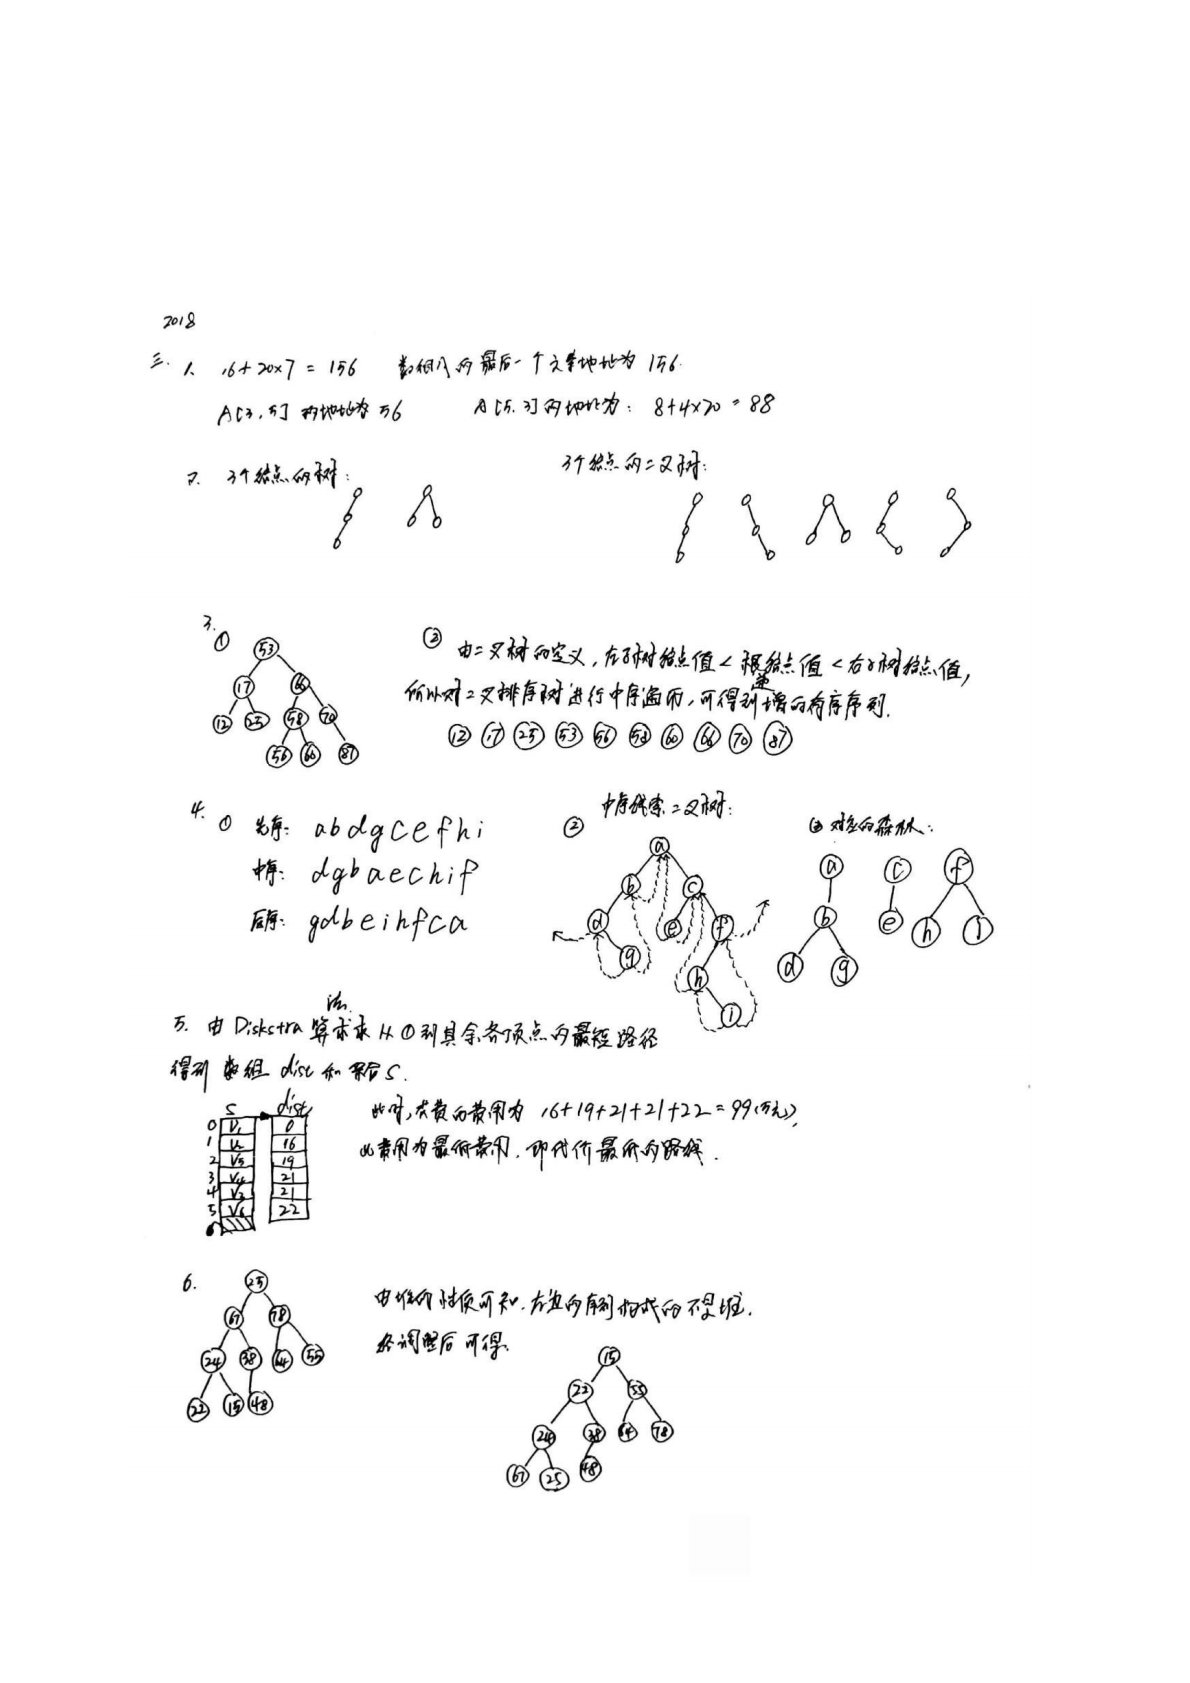 2018
三. 1. 16+20×7 = 156 数组A的最后一个元素地址为 156.
A[3,5]的地址为 56 A[5,3]的地址为: 8+4×20 = 88
2. 3个结点的树: 3个结点的二叉树:
3.
① ② 由二叉树的定义, 左子树结点值 < 根结点值 < 右子树结点值,
所以对二叉排序树进行中序遍历, 可得到递增的有序序列.
53
17 66
12 25 58 70
56 60 87
12 17 25 53 56 58 60 66 70 87
4. ① 先序: abdgcefhi
中序: dgbaechif
后序: gdbeihfca
② 中序线索二叉树:
a
b c
d e f
g h
i
③ 对应的森林:
a c f
b e h i
d g
5. 由 Diskstra 算法求从①到其余各顶点的最短路径
得到 数组 dist 和 集合 S.
S dist
0 V1 0
1 V2 16
2 V5 19
3 V4 21
4 V3 21
5 V6 22
6
此时, 花费的费用为 16+19+21+21+22 = 99(万元),
此费用为最低费用, 即代价最低的路线.
6. 由堆的性质可知, 左边的序列构成的不是堆.
经调整后可得.
25
67 78
24 38 64 55
22 15 48
15
22 55
24 38 64 78
67 25 48